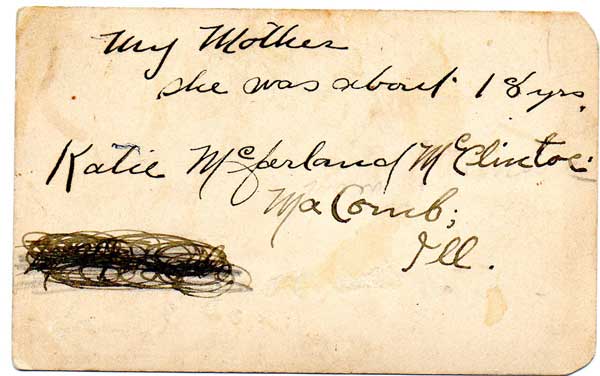 My Mother
she was about 18 yrs.
Katie McFerland McClintoc
MaComb,
Ill.